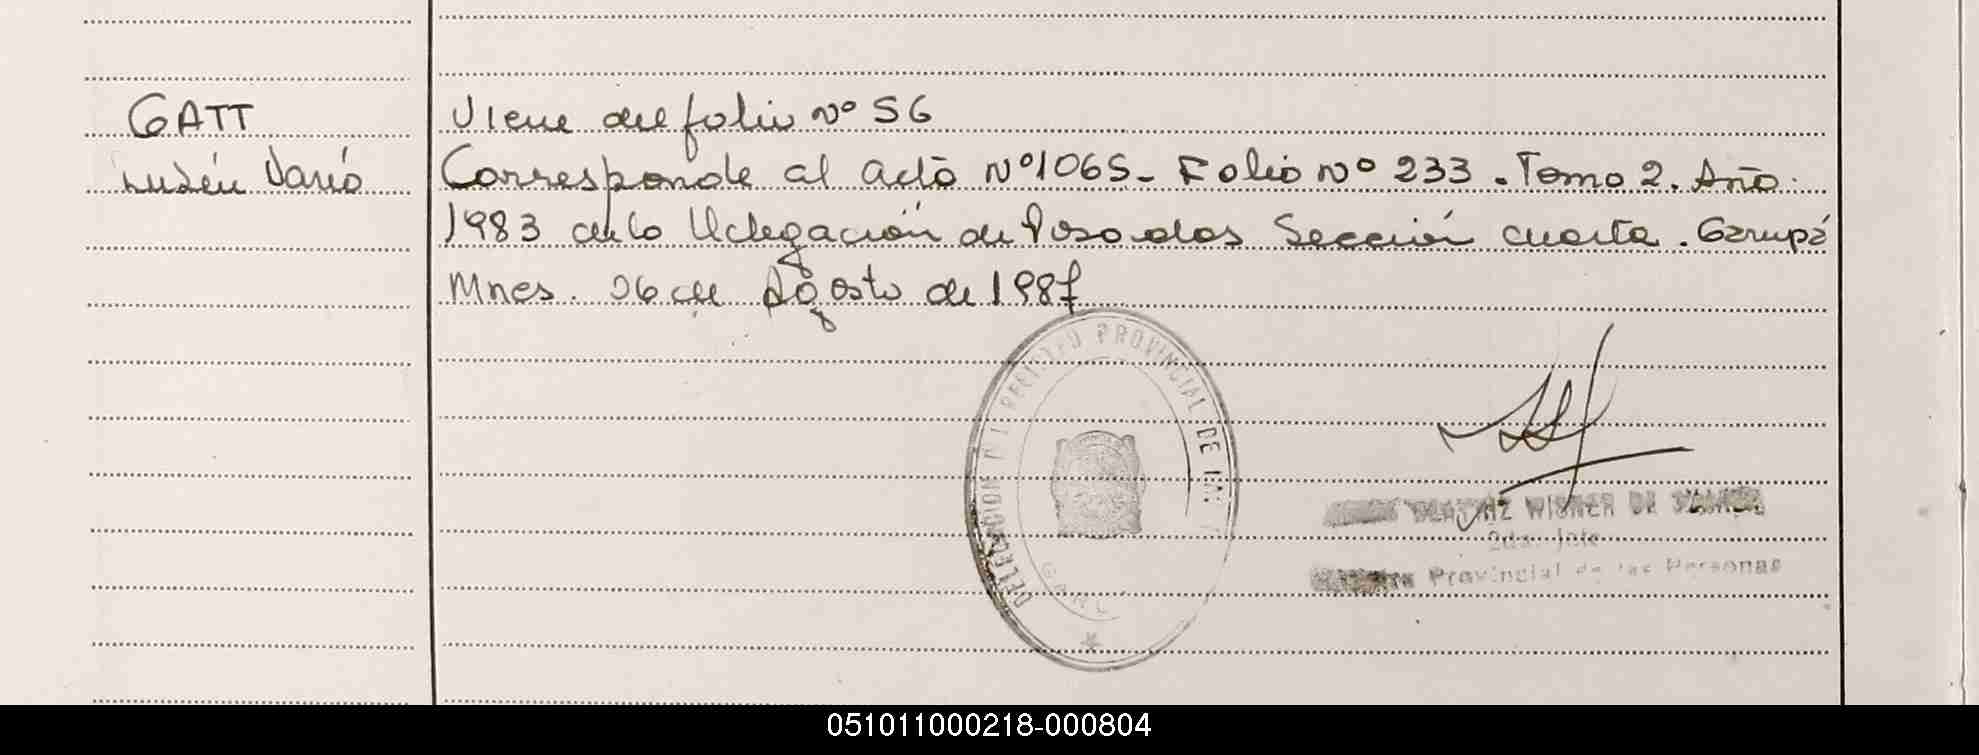 GATT
Rubén Darío
Viene del folio Nº 56
Corresponde al acta Nº 1065 - Folio Nº 233 . Tomo 2 . Año.
1983 de la Delegación de Posadas Sección cuarta . Garupá
Mnes. 06 de Agosto de 1987
DELEGACION REGISTRO PROVINCIAL DE
BEATRIZ WISNER DE
2da. Jefe
Provincial de las Personas
051011000218-000804